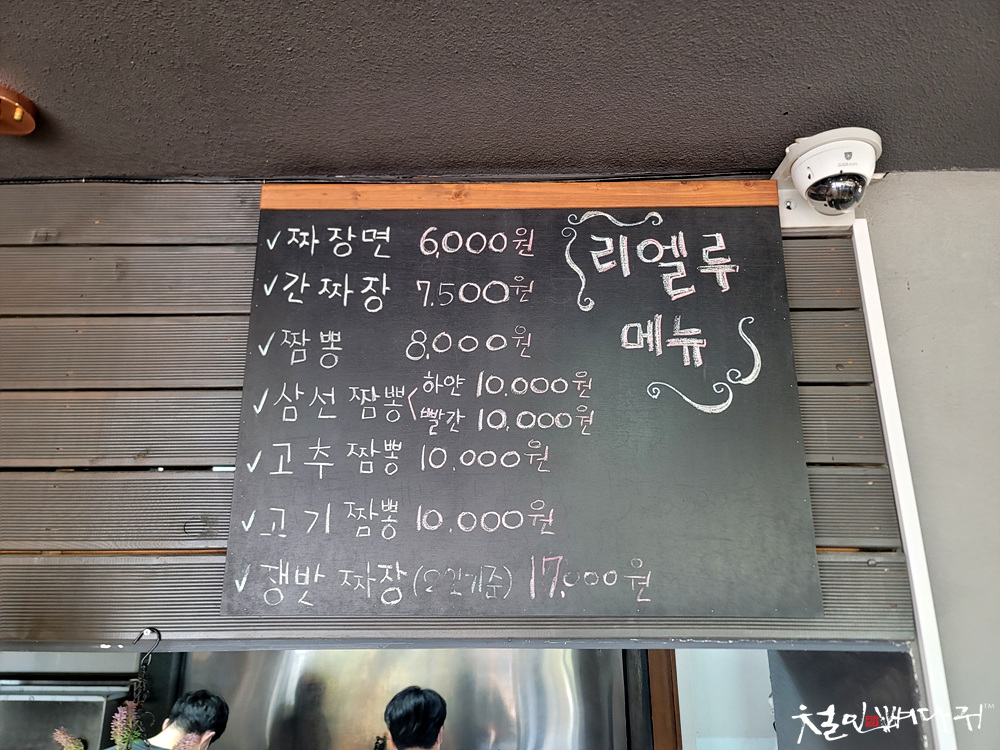 리엘루
메뉴
✓짜장면 6,000원
✓간짜장 7.500원
✓짬뽕 8,000원
✓삼선짬뽕<하얀 10.000원
빨간 10,000원
✓고추짬뽕 10.000원
✓고기짬뽕 10.000원
✓쟁반짜장(2인기준) 17,000원